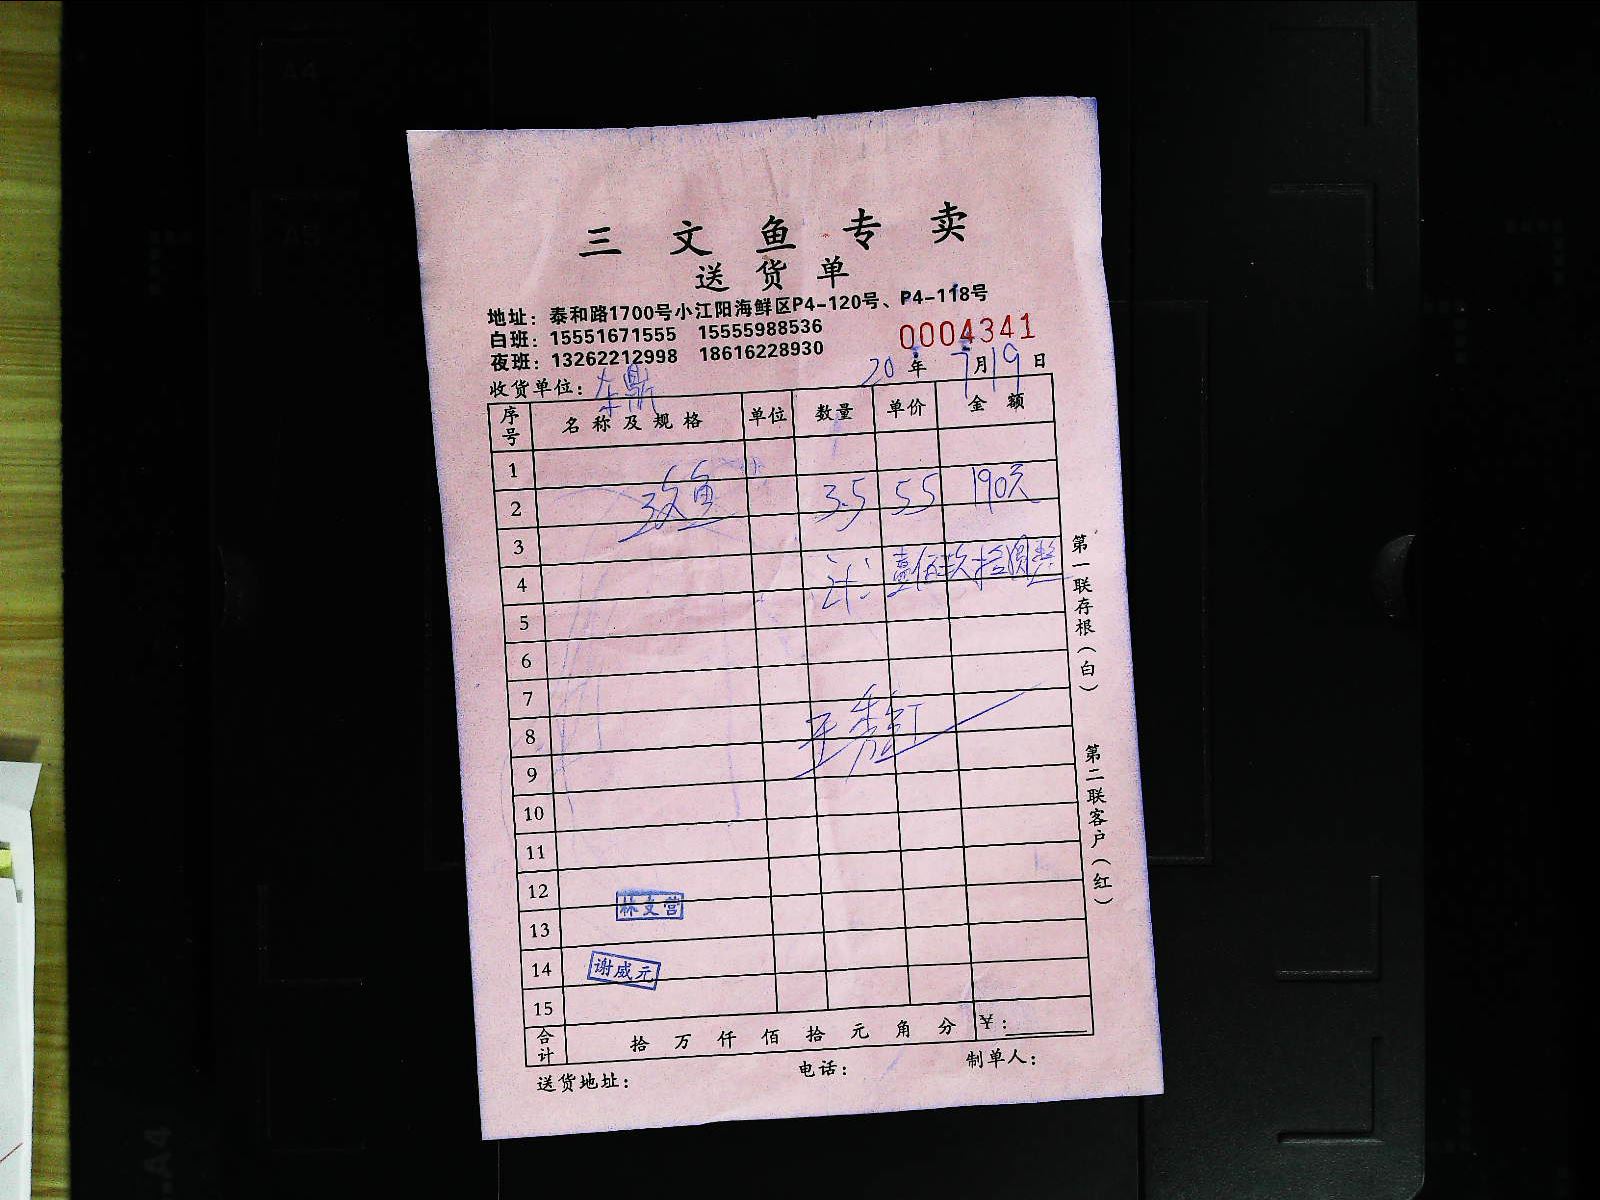 三文鱼专卖
送货单
地址：泰和路1700号小江阳海鲜区P4-120号、P4-118号
白班：15551671555 15555988536
0004341
夜班：13262212998 18616228930
20 年 7月19日
收货单位：
序号 名称及规格 单位 数量 单价 金额
1
2 三文鱼 3.5 55 190元
3
4 计：壹佰玖拾圆整
5
6
7
8 王秀红
9
10
11
12
林文营
13
14 谢威元
15
合计 拾万仟佰拾元角分 ￥：
送货地址： 电话： 制单人：
第一联存根（白）
第二联客户（红）
A4
A5
A4